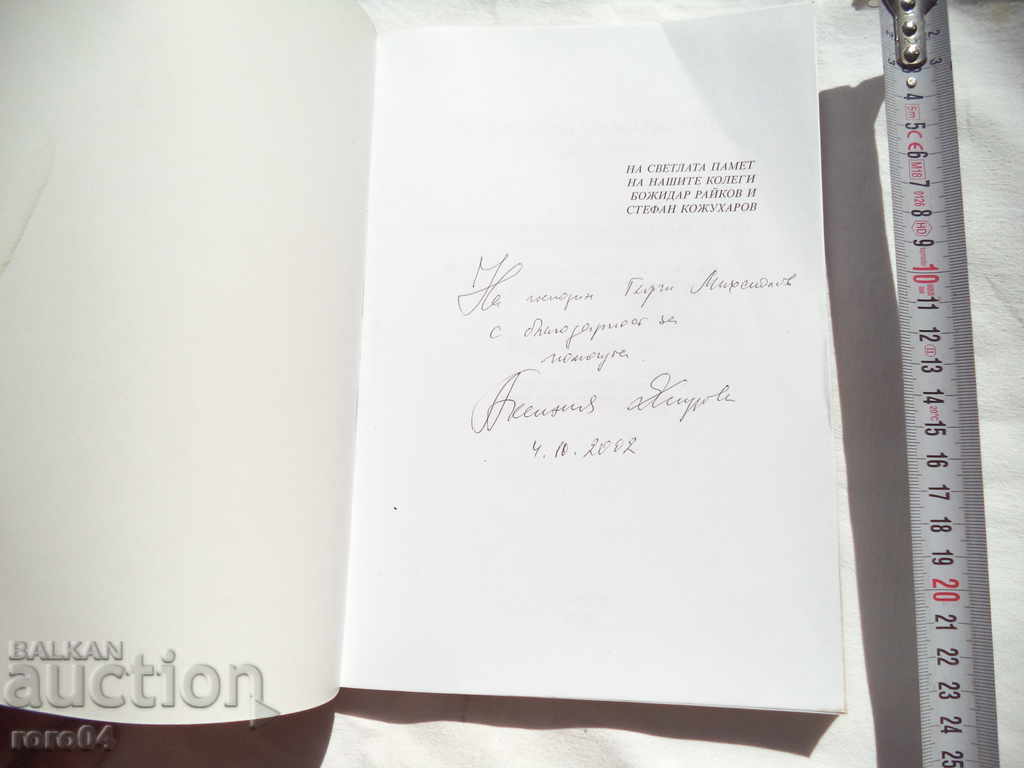 НА СВЕТЛАТА ПАМЕТ
НА НАШИТЕ КОЛЕГИ
БОЖИДАР РАЙКОВ И
СТЕФАН КОЖУХАРОВ
На господин Георги
с благодарност за
помощта
Аксиния Джурова
4.10.2002
BALKAN
auction
roro04
2
3
4
5
6
7
8
9
10
11
12
13
14
15
16
17
18
19
20
21
22
23
24
25
5m CE M18 0126
20°C
II